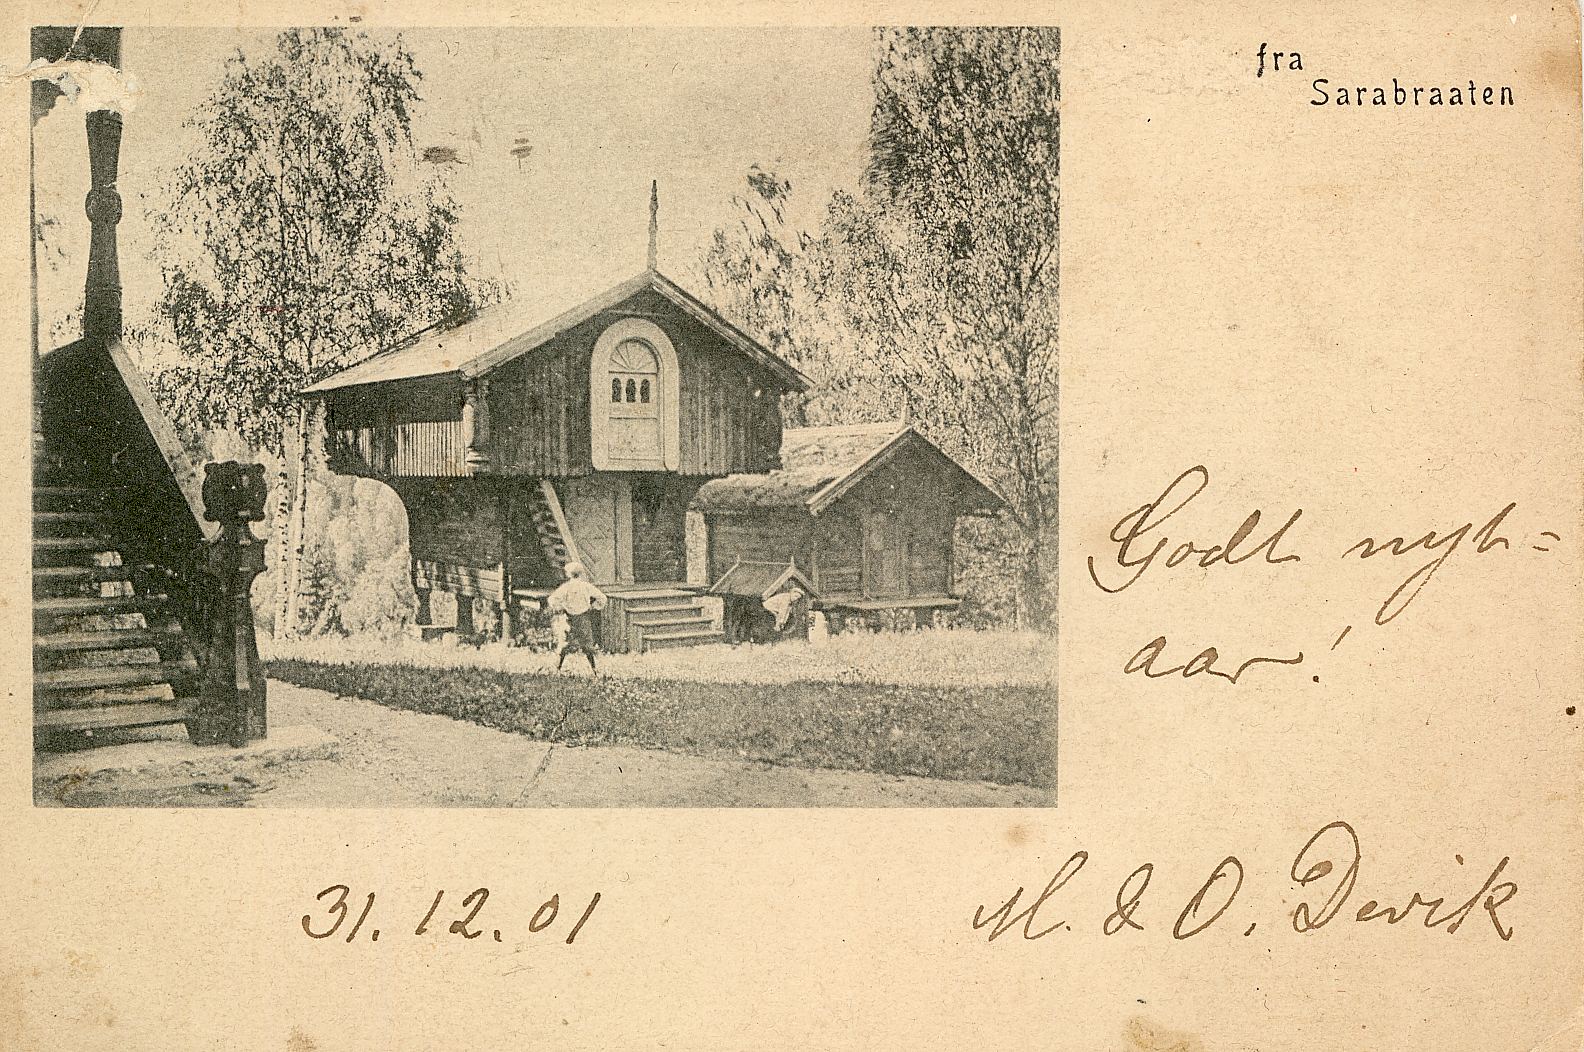 fra
Sarabraaten
Godt nyt=
aar!
31. 12. 01
M. & O. Devik